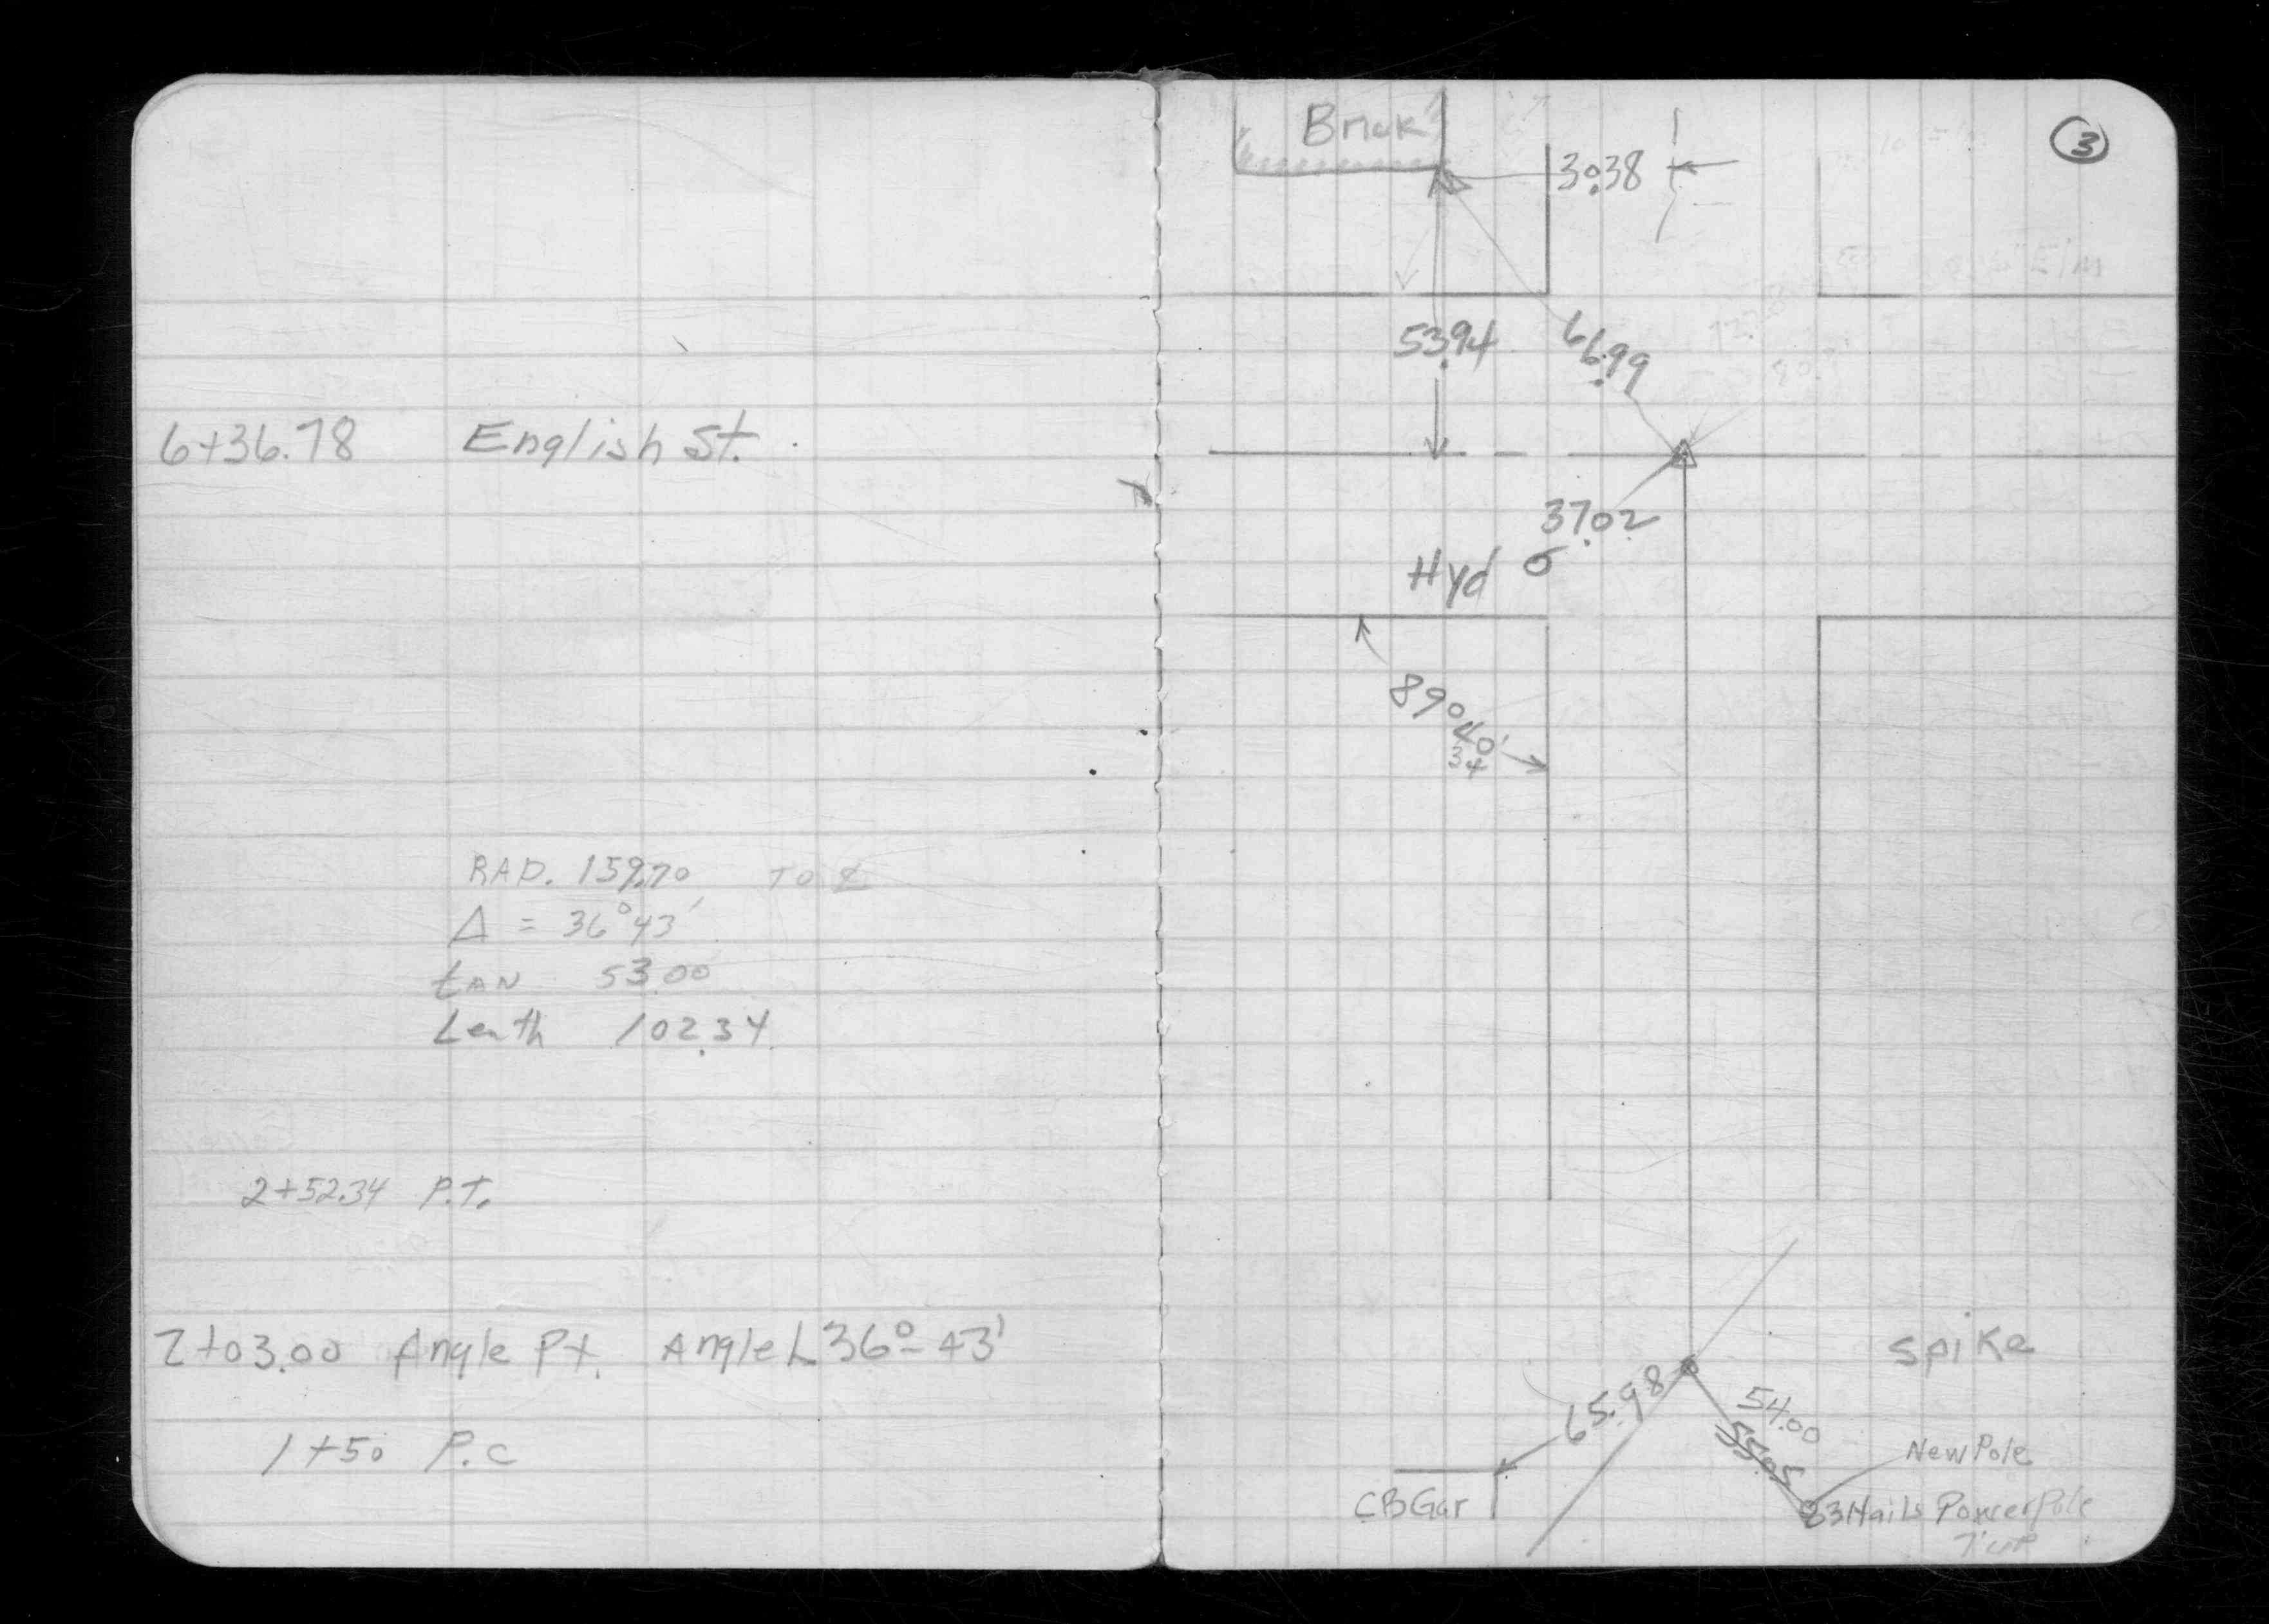 6+36.78 English St.
RAD. 159.70 TO ℄
Δ = 36°43'
tan 53.00
Lenth 102.34
2+52.34 P.T.
2+03.00 Angle Pt. Angle L 36°-43'
1+50 P.C
3
Brick
30.38
53.94
66.99
37.02
Hyd
89°40'
34
65.98
54.00
55.05
Spike
New Pole
CB Gar
3 Nails Power Pole
7' up